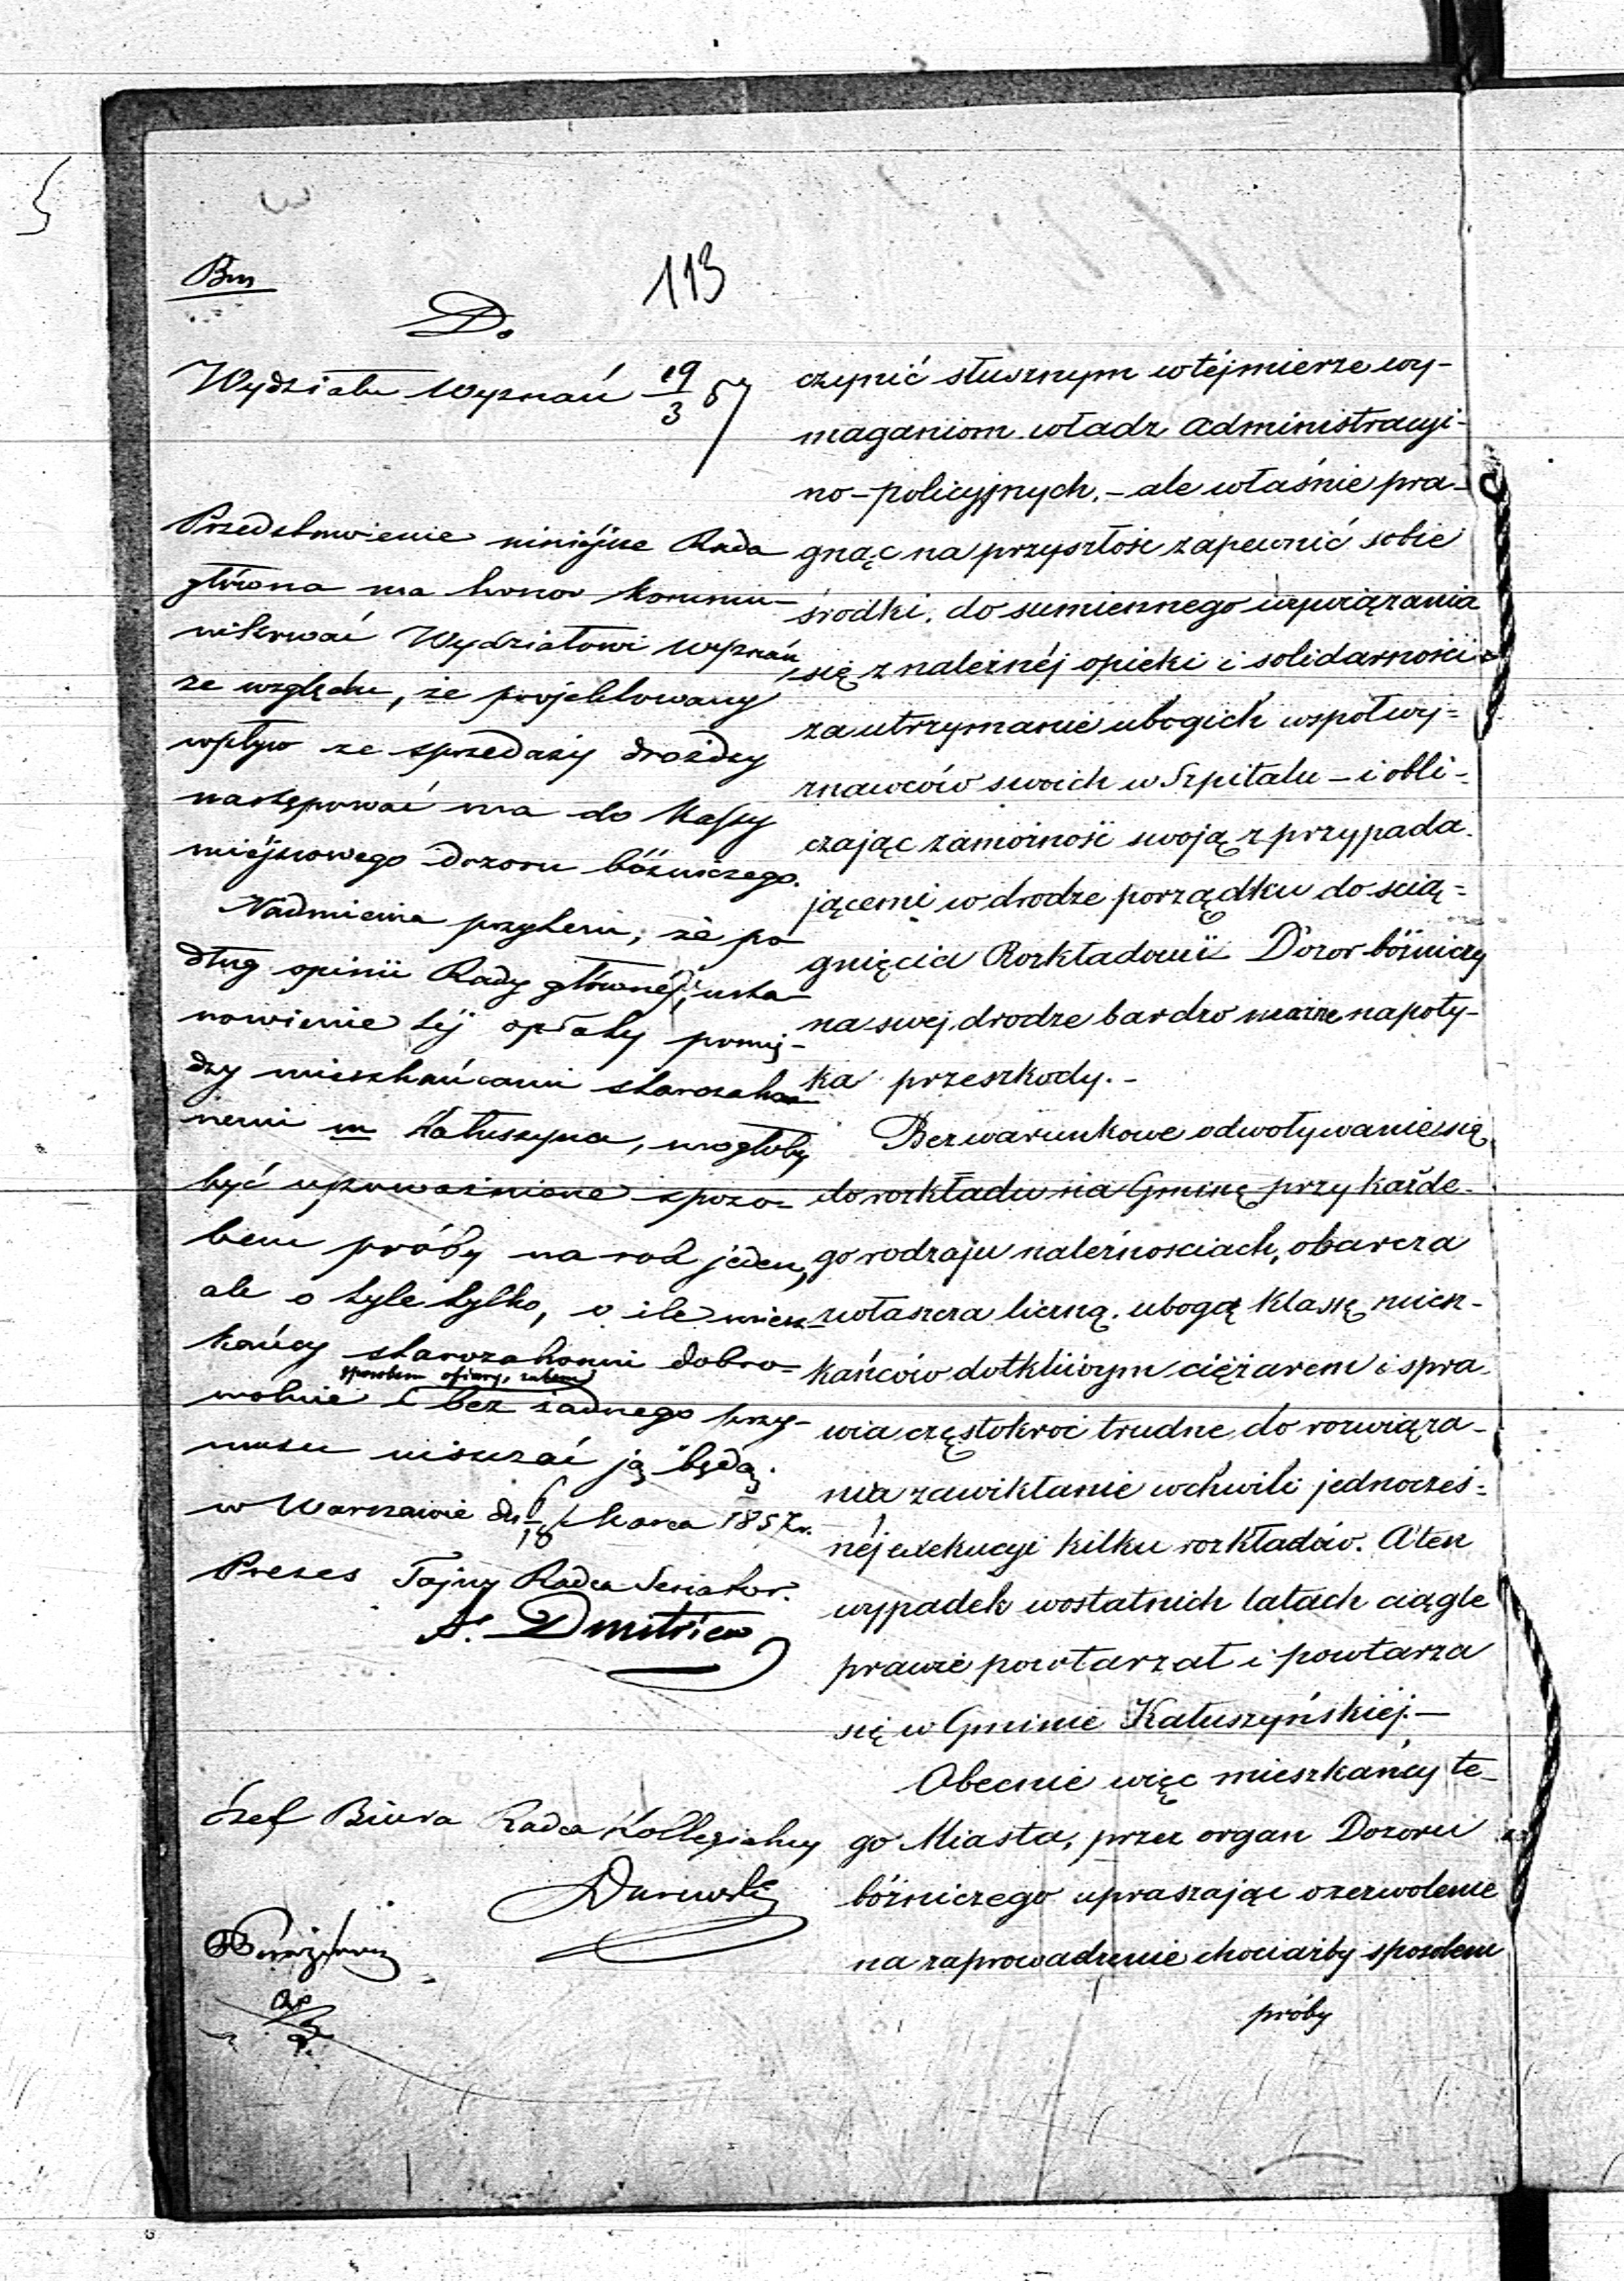 113
Bm
Do
Wydziału Wyznań 19/3 57
Przedstawienie niniejsze Rada
główna ma honor kommu-
nikować Wydziałowi wyznań,
ze względu, że projektowany
wpływ ze sprzedaży drożdży
następować ma do Kassy
miejscowego dozoru bóżniczego.
Nadmienia przytem, że po
dług opinii Rady głównej, usta-
nowienie téj opłaty pomię-
dzy mieszkańcami starozakon
nemi m Kałuszyna, mogłoby
być upoważnione sposo-
bem próby na rok jeden,
ale o tyle tylko, o ile miesz-
kańcy starozakonni dobro-
wolnie sposobem ofiary, zatem bez żadnego przy-
musu uiszczać ją będą.
w Warszawie dn 6/18 Marca 1857 r.
Prezes Tajny Radca Senator.
A. Dmitriew
Szef Biura Radca Kollegialny
czynić słusznym w téj mierze wy-
maganiom władz administracyi-
no-policyjnych. - ale właśnie pra-
gnąc na przyszłość zapewnić sobie
środki, do sumiennego wywiązania
się z należnéj opieki i solidarności
za utrzymanie ubogich współwy-
znawców swoich w Szpitalu - i obli-
czając zamożność swoją z przypada-
jącemi w drodze porządku do ścią-
gnięcia Rozkładami Dozor bóżniczy
na swej drodze bardzo ważne napoty-
ka przeszkody. -
Bezwarunkowe odwoływanie się
do rozkładu na Gminę przy każde-
go rodzaju należnościach, obarcza
zwłaszcza liczną ubogą klassę miesz-
kańców dotkliwym ciężarem i spra-
wia częstokroć trudne do rozwiąza-
nia zawikłanie w chwili jednocześ-
néj exekucyi kilku rozkładów. A ten
wypadek w ostatnich latach ciągle
prawie powtarzał i powtarza
się w Gminie Kałuszyńskiéj. -
Obecnie więc mieszkańcy te-
go Miasta, przez organ Dozoru
bóżniczego upraszając o zezwolenie
na zaprowadzenie chociażby sposobem
próby